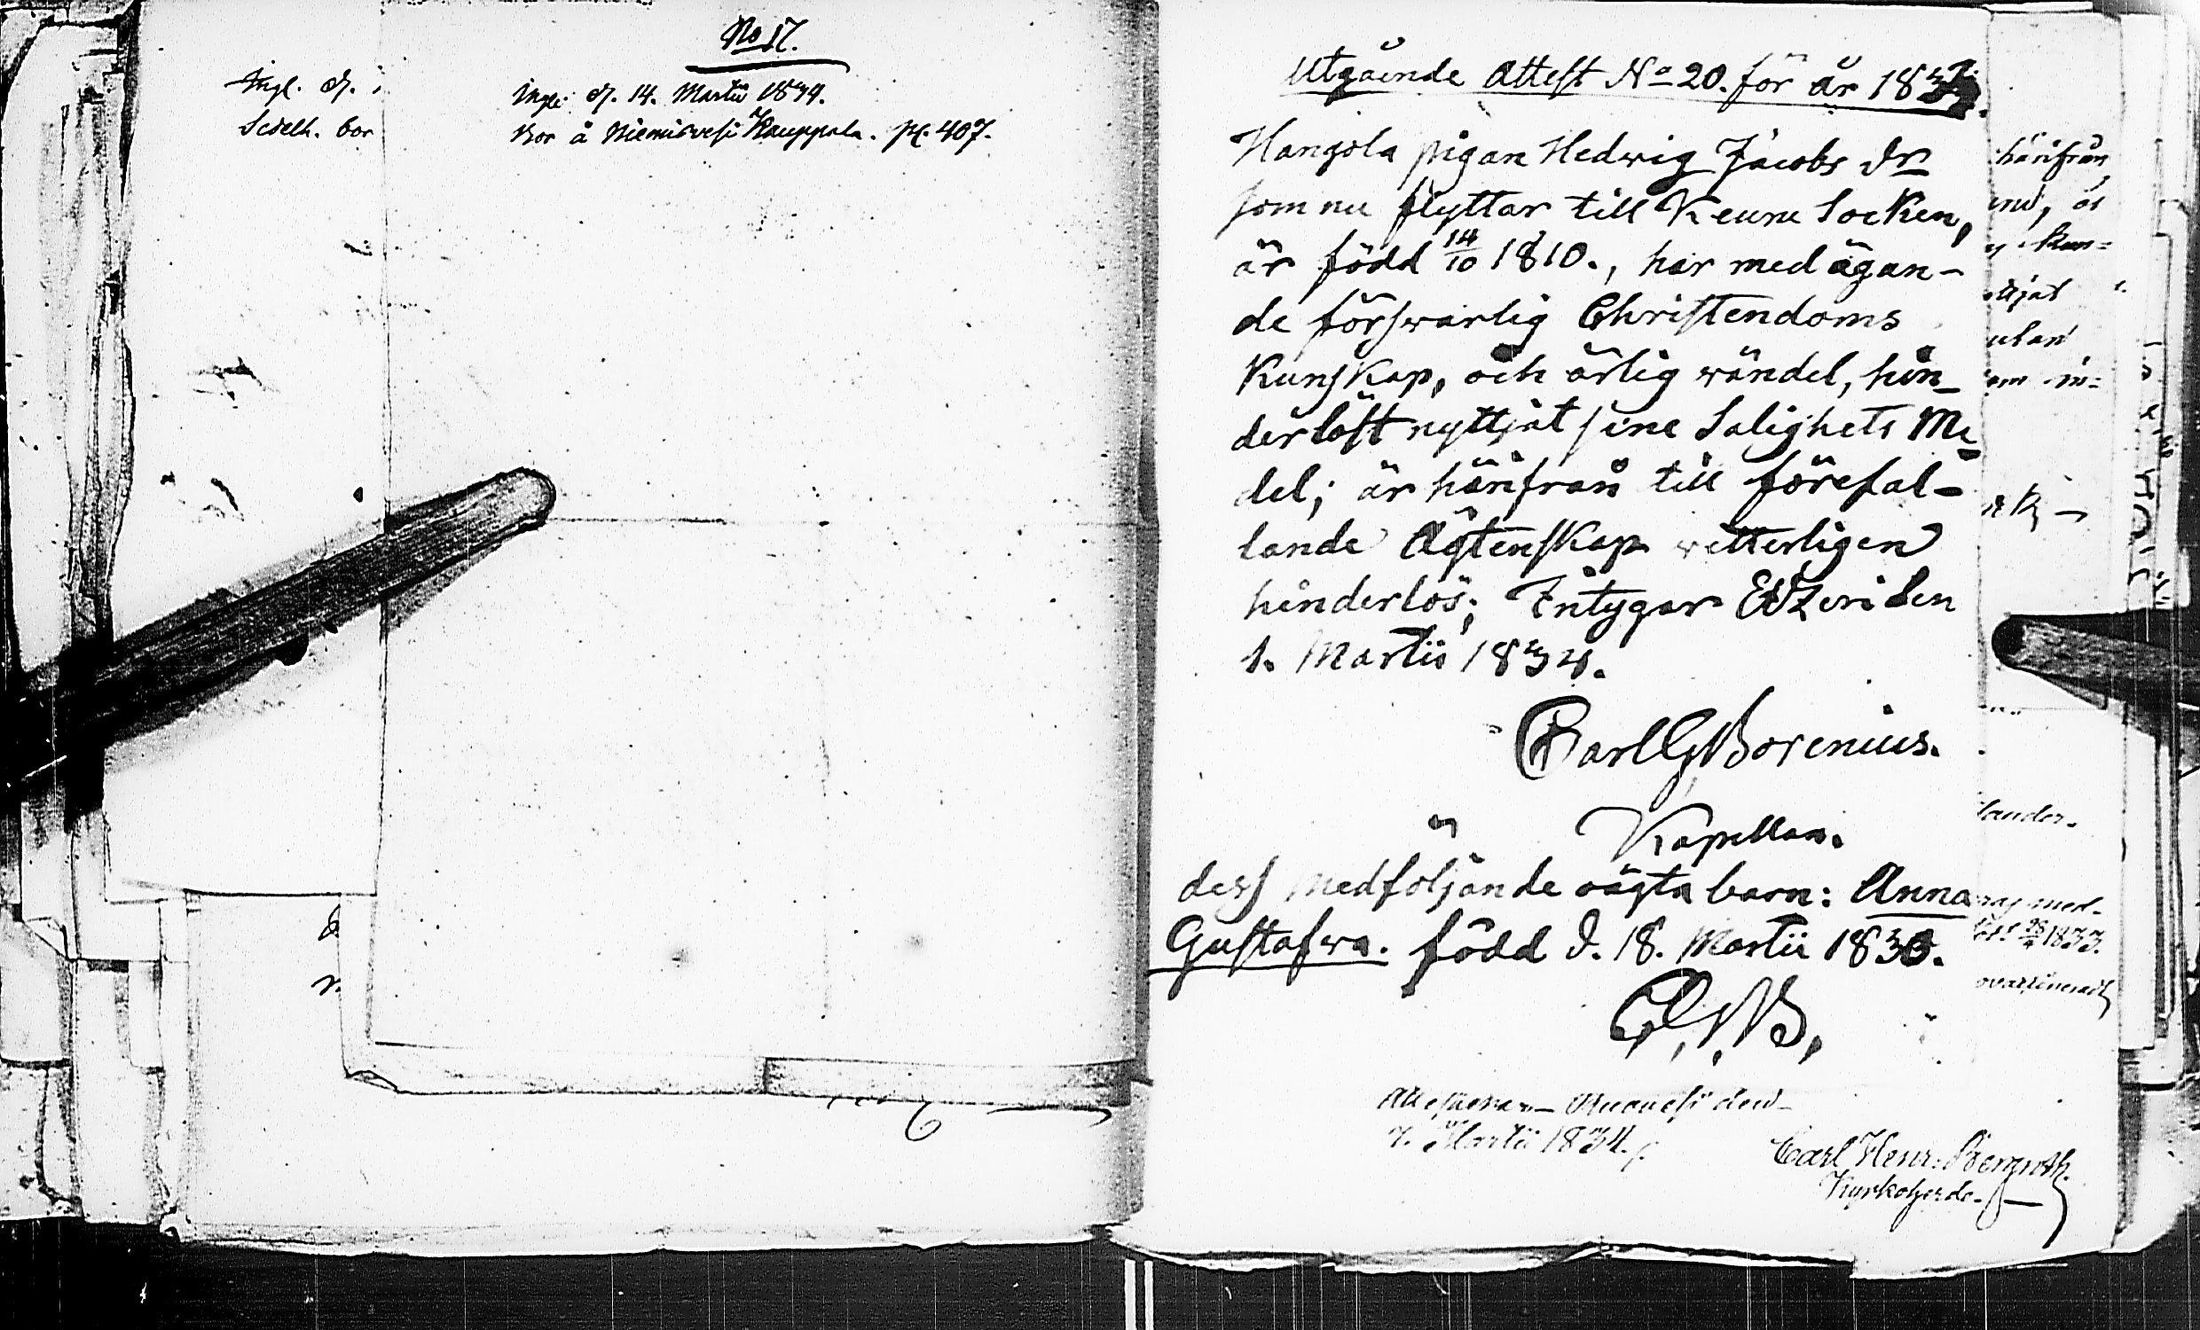 No 17.
Ingl. d. 14. Martii 1834.
Bor å Niemisvesi Kauppala. pg. 407.
Ingl. d.
Sedelh. bor
Utgående Attest No 20. för år 1834.
Hangola pigan Hedwig Jacobs dr
som nu flyttar till Keuru Socken,
är född 14/10 1810., har med ägan-
de förswarlig Christendoms
Kunskap, och ärlig wandel, hin-
derlöst nyttjat sine Salighets Me-
del; är härifrån till förefal-
lande Ägtenskap witterligen
hinderlös; Intygar Etzeri den
1. Martii 1834.
Carl G Borenius.
Kapellan.
dess medföljande oägta barn: Anna
Gustafwa. född d. 18. Martii 1833.
C. G. B.
den
7. Martii 1834.
Carl Henr. Bergroth.
Kyrkoherde.
härifrån
utan
med-
1833.